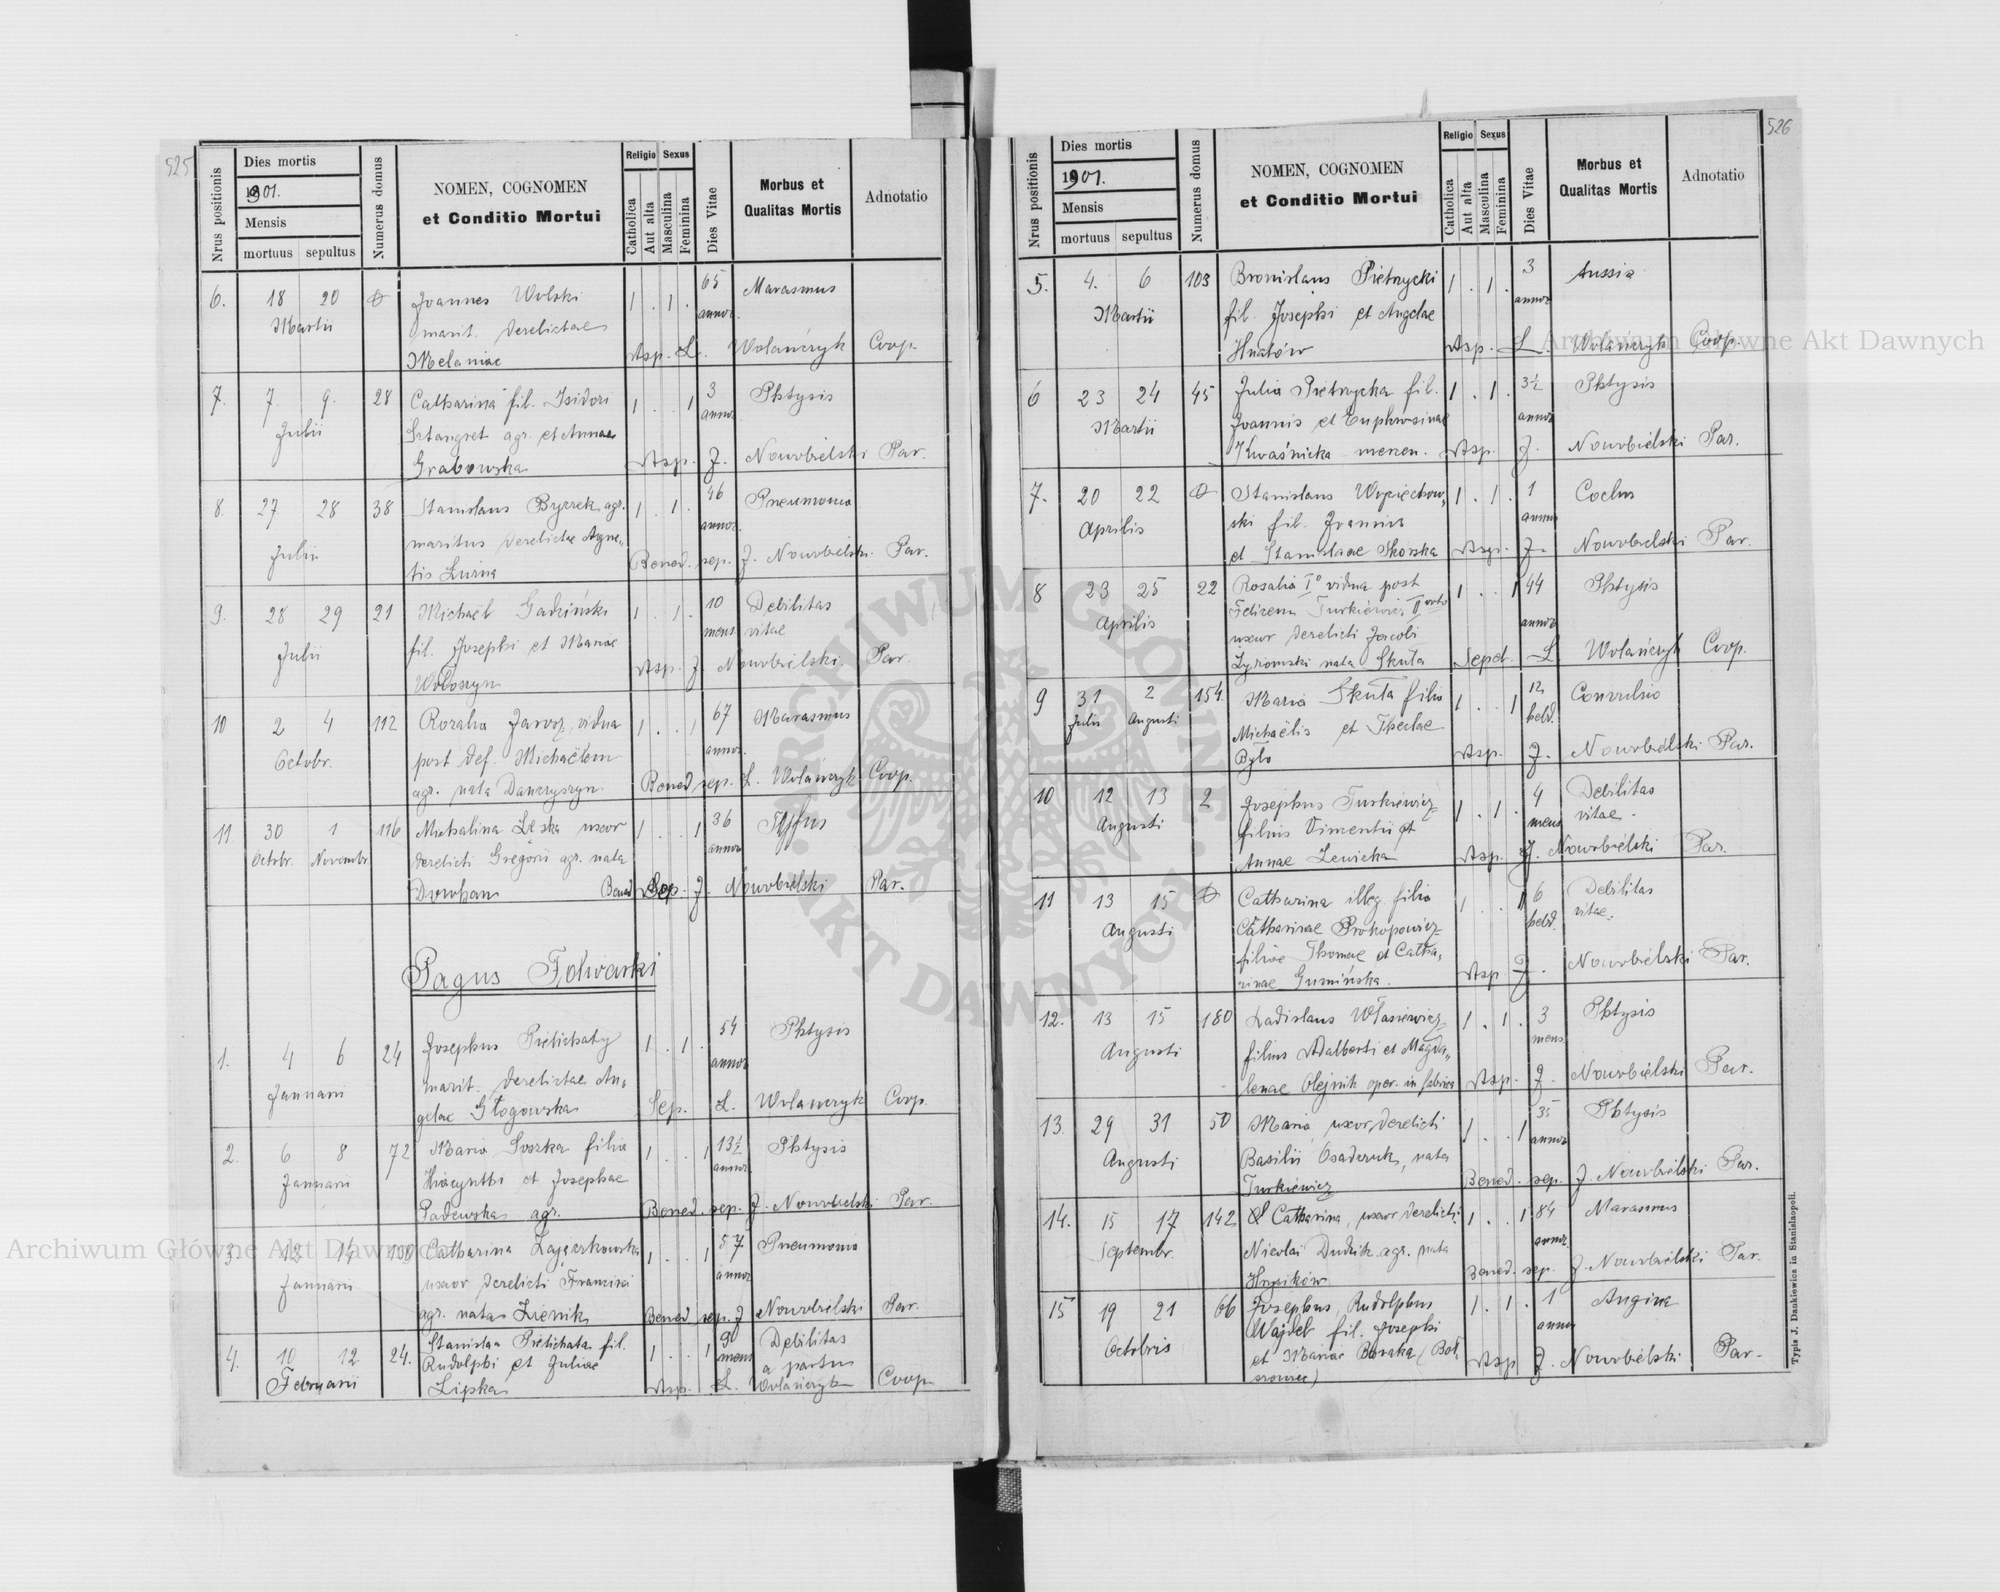 525
Nrus positionis
Dies mortis
1901.
Mensis
mortuus sepultus
Numerus domus
NOMEN, COGNOMEN
et Conditio Mortui
Religio Sexus
Catholica
Aut alta
Masculina
Feminina
Dies Vitae
Morbus et
Qualitas Mortis
Adnotatio
6. 18 20 Joannes Wolski 1 . 1 . 65 Marasmus
Martii marit. derelictae annor.
Melaniae Asp. L. Wolańczyk Coop.
7. 7 9. 28 Catharina fil. Isidori 1 . . 1 3 Phtysis
Julii Sztangret agr. et Annae annor
Grabowska Asp. J. Nowobielski Par.
8. 27 28 38 Stanislaus agr. 1 . 1 . 46 Pneumonia
Julii maritus derelictae Agne- annor.
tis Bened. sep. J. Nowobielski. Par.
9. 28 29 21 Michaël Gadziński 1 . 1 . 10 Debilitas
Julii fil. Josephi et Mariae mens. vitae
Wołoszyn Asp. J. Nowobielski. Par.
10 2 4 112 Rozalia vidua 1 . . 1 67 Marasmus
Octobr. post def. Michaëlem annor.
agr. nata Bened sep. L. Wolańczyk Coop.
11. 30 1 116 Michalina uxor 1 . . 1 36 Tyfus
Octobr. Novembr derelicti Gregorii agr. nata annor
Bened Sep. J. Nowobielski Par.
Pagus Folwarki
1. 4 6 24 Josephus Pielichaty 1 . 1 . 54 Phtysis
Januarii marit. derelictae An- annor
gelae Głogowska Sep. L. Wolańczyk Coop.
2. 6 8 72 Maria Soszka filia 1 . . 1 13½ Phtysis
Januarii Hiacynthi et Josephae annor
Padewska agr. Bened. sep. J. Nowobielski Par.
3. 12 14 130 Catharina Zajączkowska 1 . . 1 57 Pneumonia
Januarii uxor derelicti Francisci annor
agr. nata Bened sep. J Nowobielski Par.
4. 10 12 24. Stanislaa Pielichata fil. 1 . . 1 9 Debilitas
Februarii Rudolphi et Juliae mens a partu
Lipska Asp. L. Wolańczyk Coop
526
Nrus positionis
Dies mortis
1901.
Mensis
mortuus sepultus
Numerus domus
NOMEN, COGNOMEN
et Conditio Mortui
Religio Sexus
Catholica
Aut alta
Masculina
Feminina
Dies Vitae
Morbus et
Qualitas Mortis
Adnotatio
5. 4. 6 103 Bronislaus Pietrzycki 1 . 1 . 3 tussis
Martii fil. Josephi et Angelae annor
Hnatów Asp. L. Wolańczyk Coop.
6 23 24 45 Julia Pietrzycka fil. 1 . 1 . 3½ Phtysis
Martii Joannis et Euphrosinae annor
Kwaśnicka mercen. Asp. J. Nowobielski Par.
7. 20 22 Stanislaus Wojciechow- 1 . 1 . 1 Coclus
Aprilis ski fil. Joannis annus
et Stanislaae Skórska Asp. J. Nowobielski Par.
8 23 25 22 Rosalia I° vidua post 1 . . 1 44 Phtysis
Aprilis Turkiewicz II voto annor
uxor derelicti Jacobi
Żyromski nata Skuła Sepel. L Wolańczyk Coop.
9 31 2 154. Maria Skuła filia 1 . . 1 12 Convulsio
Julii Augusti Michaëlis et Theclae hebd.
Było Asp. J. Nowobielski Par.
10 12 13 2 Josephus Turkiewicz 1 . 1 . 4 Debilitas
Augusti filius et mens vitae.
Annae Lewicka Asp. J. Nowobielski Par.
11 13 15 Catharina illeg. filia 1 . . 1 6 Debilitas
Augusti Catharinae Prokopowicz hebd. vitae.
filiae Thomae et Catha-
rinae Gumińska. Asp J. Nowobielski Par.
12. 13 15 180 Ladislaus Własiewicz 1 . 1 . 3 Phtysis
Augusti filius Adalberti et Magda- mens
lenae Olejnik oper. in fabrica Asp. J. Nowobielski Par.
13. 29 31 50 Maria, uxor derelicti 1 . . 1 35 Phtysis
Augusti Basilii Osadczuk, nata annor
Turkiewicz Bened. sep. J. Nowobielski Par.
14. 15 17 142 Catharina, uxor derelicti 1 . . 1 84 Marasmus
Septembr. Nicolai Dudzik agr. nata annor.
Bened. sep. J. Nowobielski Par.
15 19 21 66 Josephus, Rudolphus 1 . 1 . 1 Angina
Octobris Wajdel fil. Josephi annus
et Mariae Baraka (Boł-
szowce) Asp J. Nowobielski Par.
Typis J. Dankiewicz in Stanislaopoli.
Archiwum Główne Akt Dawnych
Archiwum Główne Akt Dawnych
ARCHIWUM GŁÓWNE AKT DAWNYCH